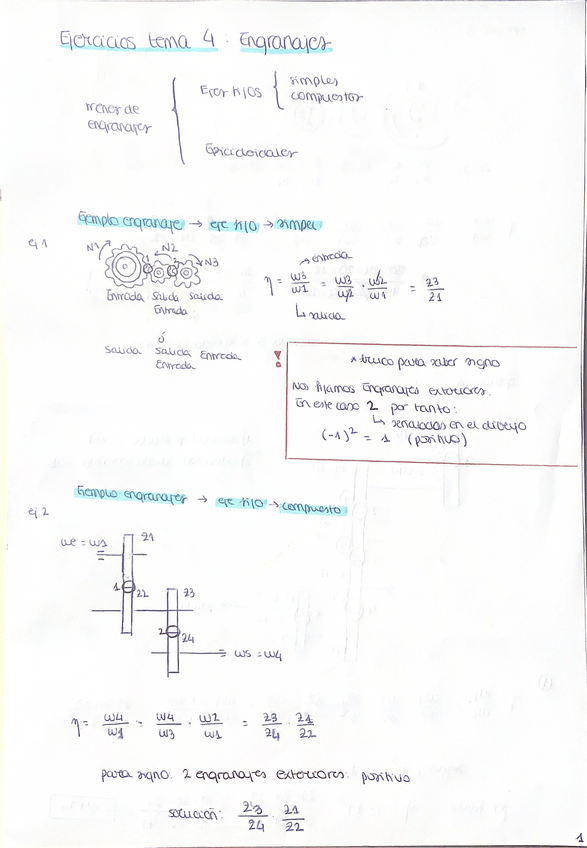 Ejercicios tema 4 : Engranajes
trenes de engranajes
Ejes fijos
simples
compuestos
Epicicloidales
Ejemplo engranaje → eje fijo → simple
ej 1
N1 N2 N3
1 2
Entrada Salida Salida
Entrada
ó
Salida Salida Entrada
Entrada
→ entrada
η = ω3/ω1 = ω3/ω2 · ω2/ω1 = z3/z1
↳ salida
! * truco para saber signo
Nos fijamos Engranajes exteriores.
En este caso 2 por tanto:
↳ señaladas en el dibujo
(-1)² = 1 (positivo)
Ejemplo engranajes → eje fijo → compuesto
ej 2
ωe = ω1
z1
1 z2 z3
2 z4
ωs = ω4
η = ω4/ω1 = ω4/ω3 · ω2/ω1 = z3/z4 · z1/z2
para signo: 2 engranajes exteriores: positivo
solución: z3/z4 · z1/z2
1